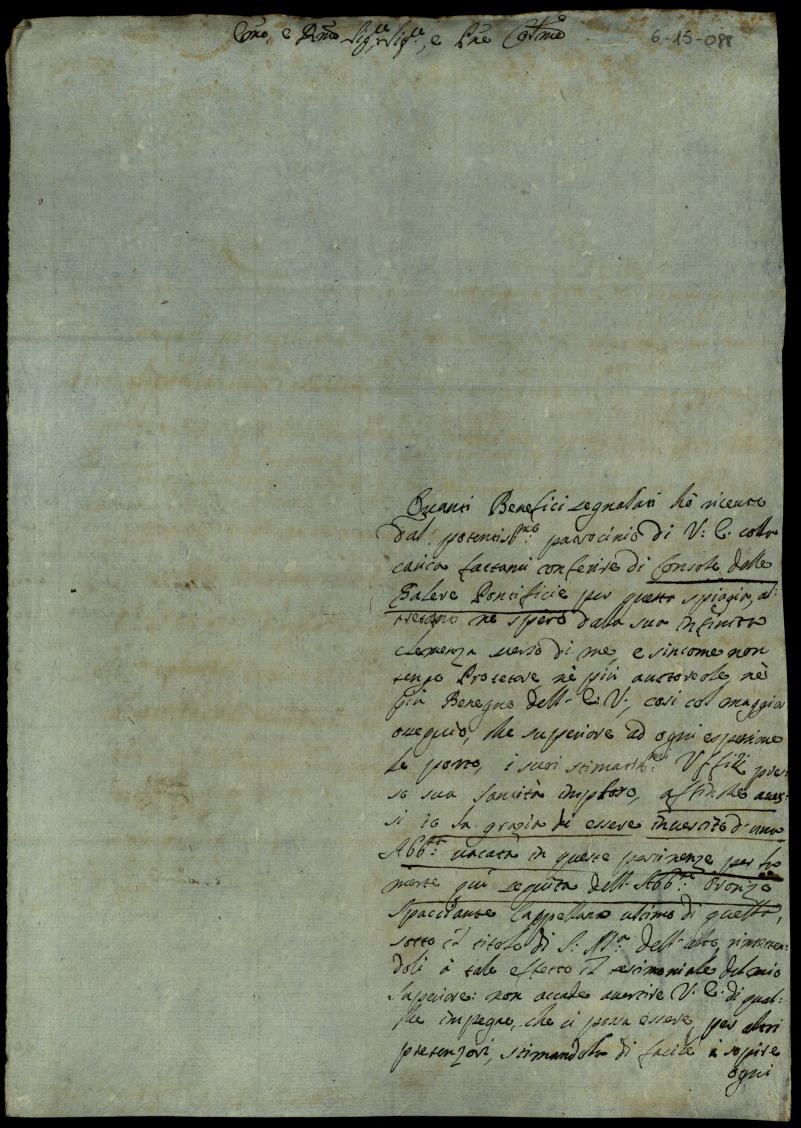 Emo, e Rmo Sigre Sigre, e Pne Colmo
6-15-088
Quanti Benefici segnalati hò ricevute
dal potentismo: patrocinio di V: E: colla
carica fattami conferire di Console delle
Galere Pontificie per questa spiagia, al:
tretanti ne spero dalla sua infinita
clemenza verso di me, e sincome non
tengo Protetore nè più auttorevole, nè
più Benegno dell' E: V:, così col maggior
ossequio, che superiore ad ogni espressione
le porto, i suoi stimatissmi: Uffizi pres:
so sua Santità imploro, affinche aves:
si io la grazia di essere investito d'una
Abbia: vacata in queste pertinenze per la
morte quì seguita dell' Abbe: Oronzo
Spacciante Cappellano ultimo di questa,
sotto il titolo di S: Ma dell' alto, rimetten:
doli à tale effetto il testimoniale del mio
Superiore: non accade avertire V: E: di qual:
che impegno, che ci possa essere, per altri
pretenzori, stimandola di facile à sopire
ogni